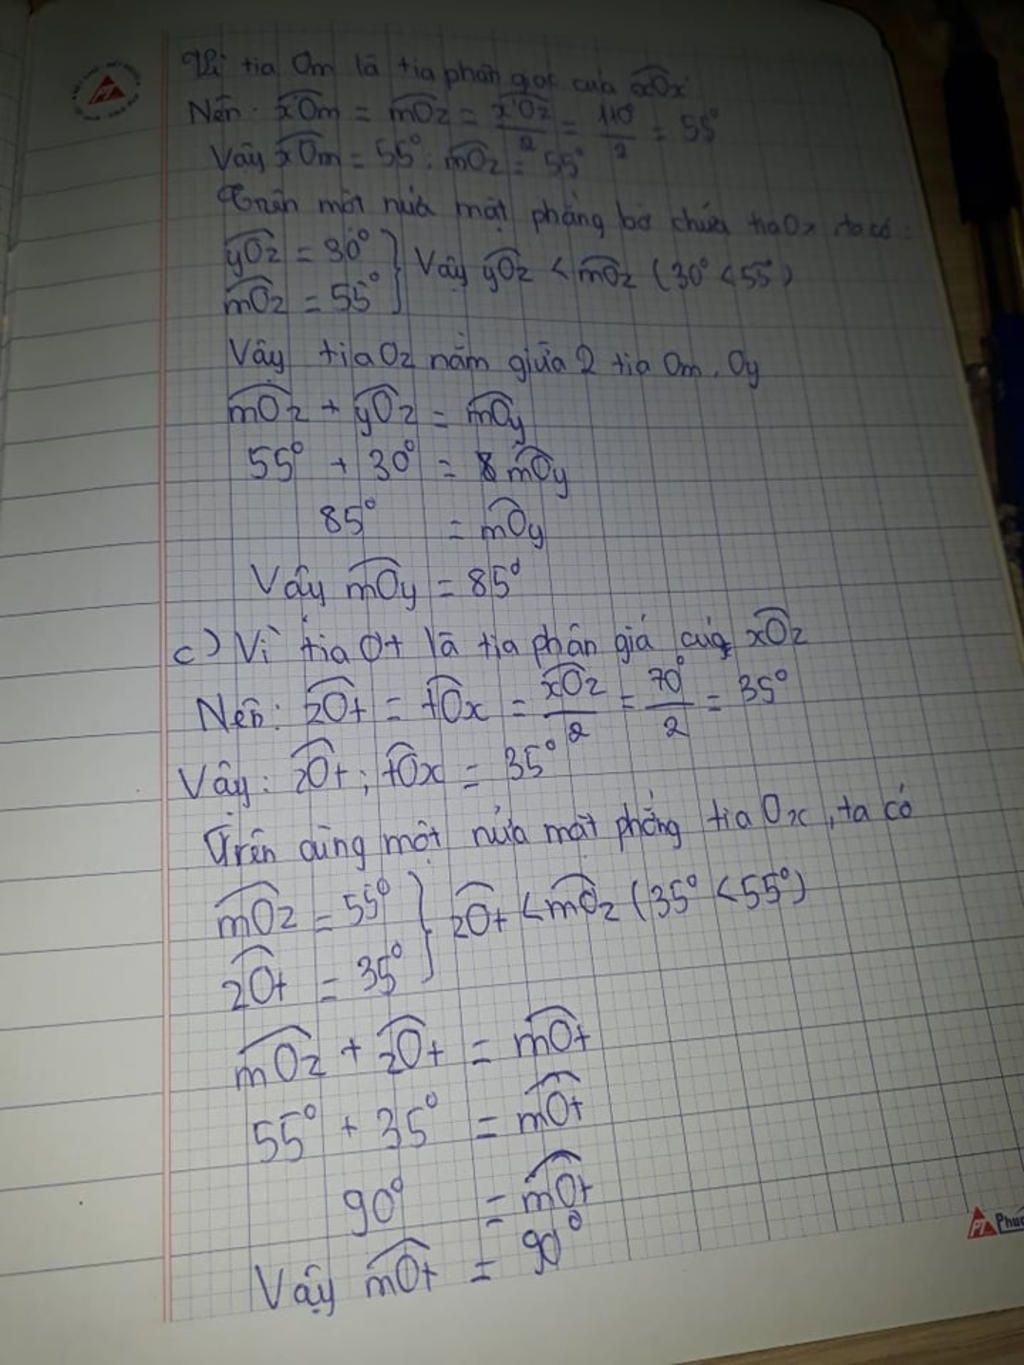 Vì tia Om là tia phân góc của xOx'
Nên: xOm = mOz = x'Oz/2 = 110°/2 = 55°
Vậy xOm = 55°; mOz = 55°
Trên một nửa mặt phẳng bờ chứa tia Ox ta có:
yOz = 30° } Vậy yOz < mOz (30° < 55°)
mOz = 55°
Vậy tia Oz nằm giữa 2 tia Om, Oy
mOz + yOz = mOy
55° + 30° = mOy
85° = mOy
Vậy mOy = 85°
c) Vì tia Ot là tia phân giá của xOz
Nên: zOt = tOx = xOz/2 = 70°/2 = 35°
Vậy: zOt; tOx = 35°
Trên cùng một nửa mặt phẳng tia Ox, ta có
mOz = 55° } zOt < mOz (35° < 55°)
zOt = 35°
mOz + zOt = mOt
55° + 35° = mOt
90° = mOt
Vậy mOt = 90°
PT